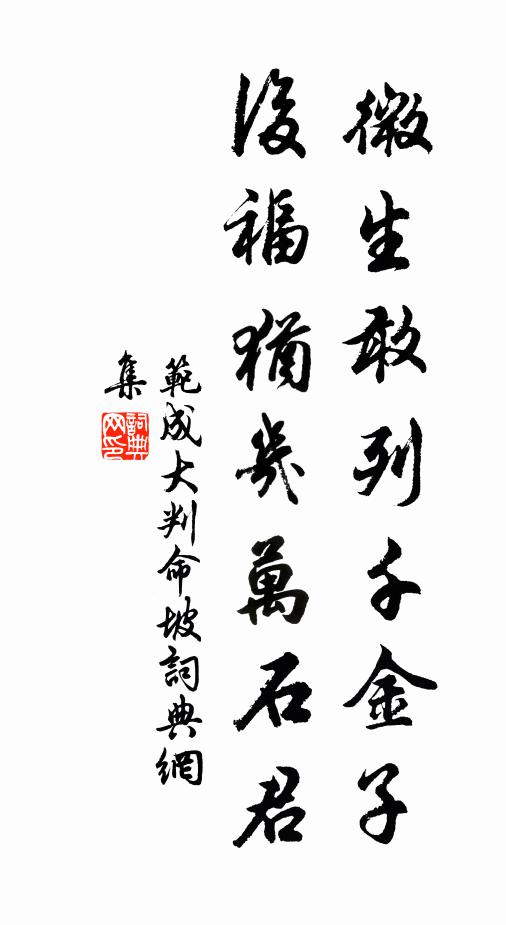 微生敢列千金子
後福猶幾萬石君
範成大判命坡詞典網
集
詞典网印